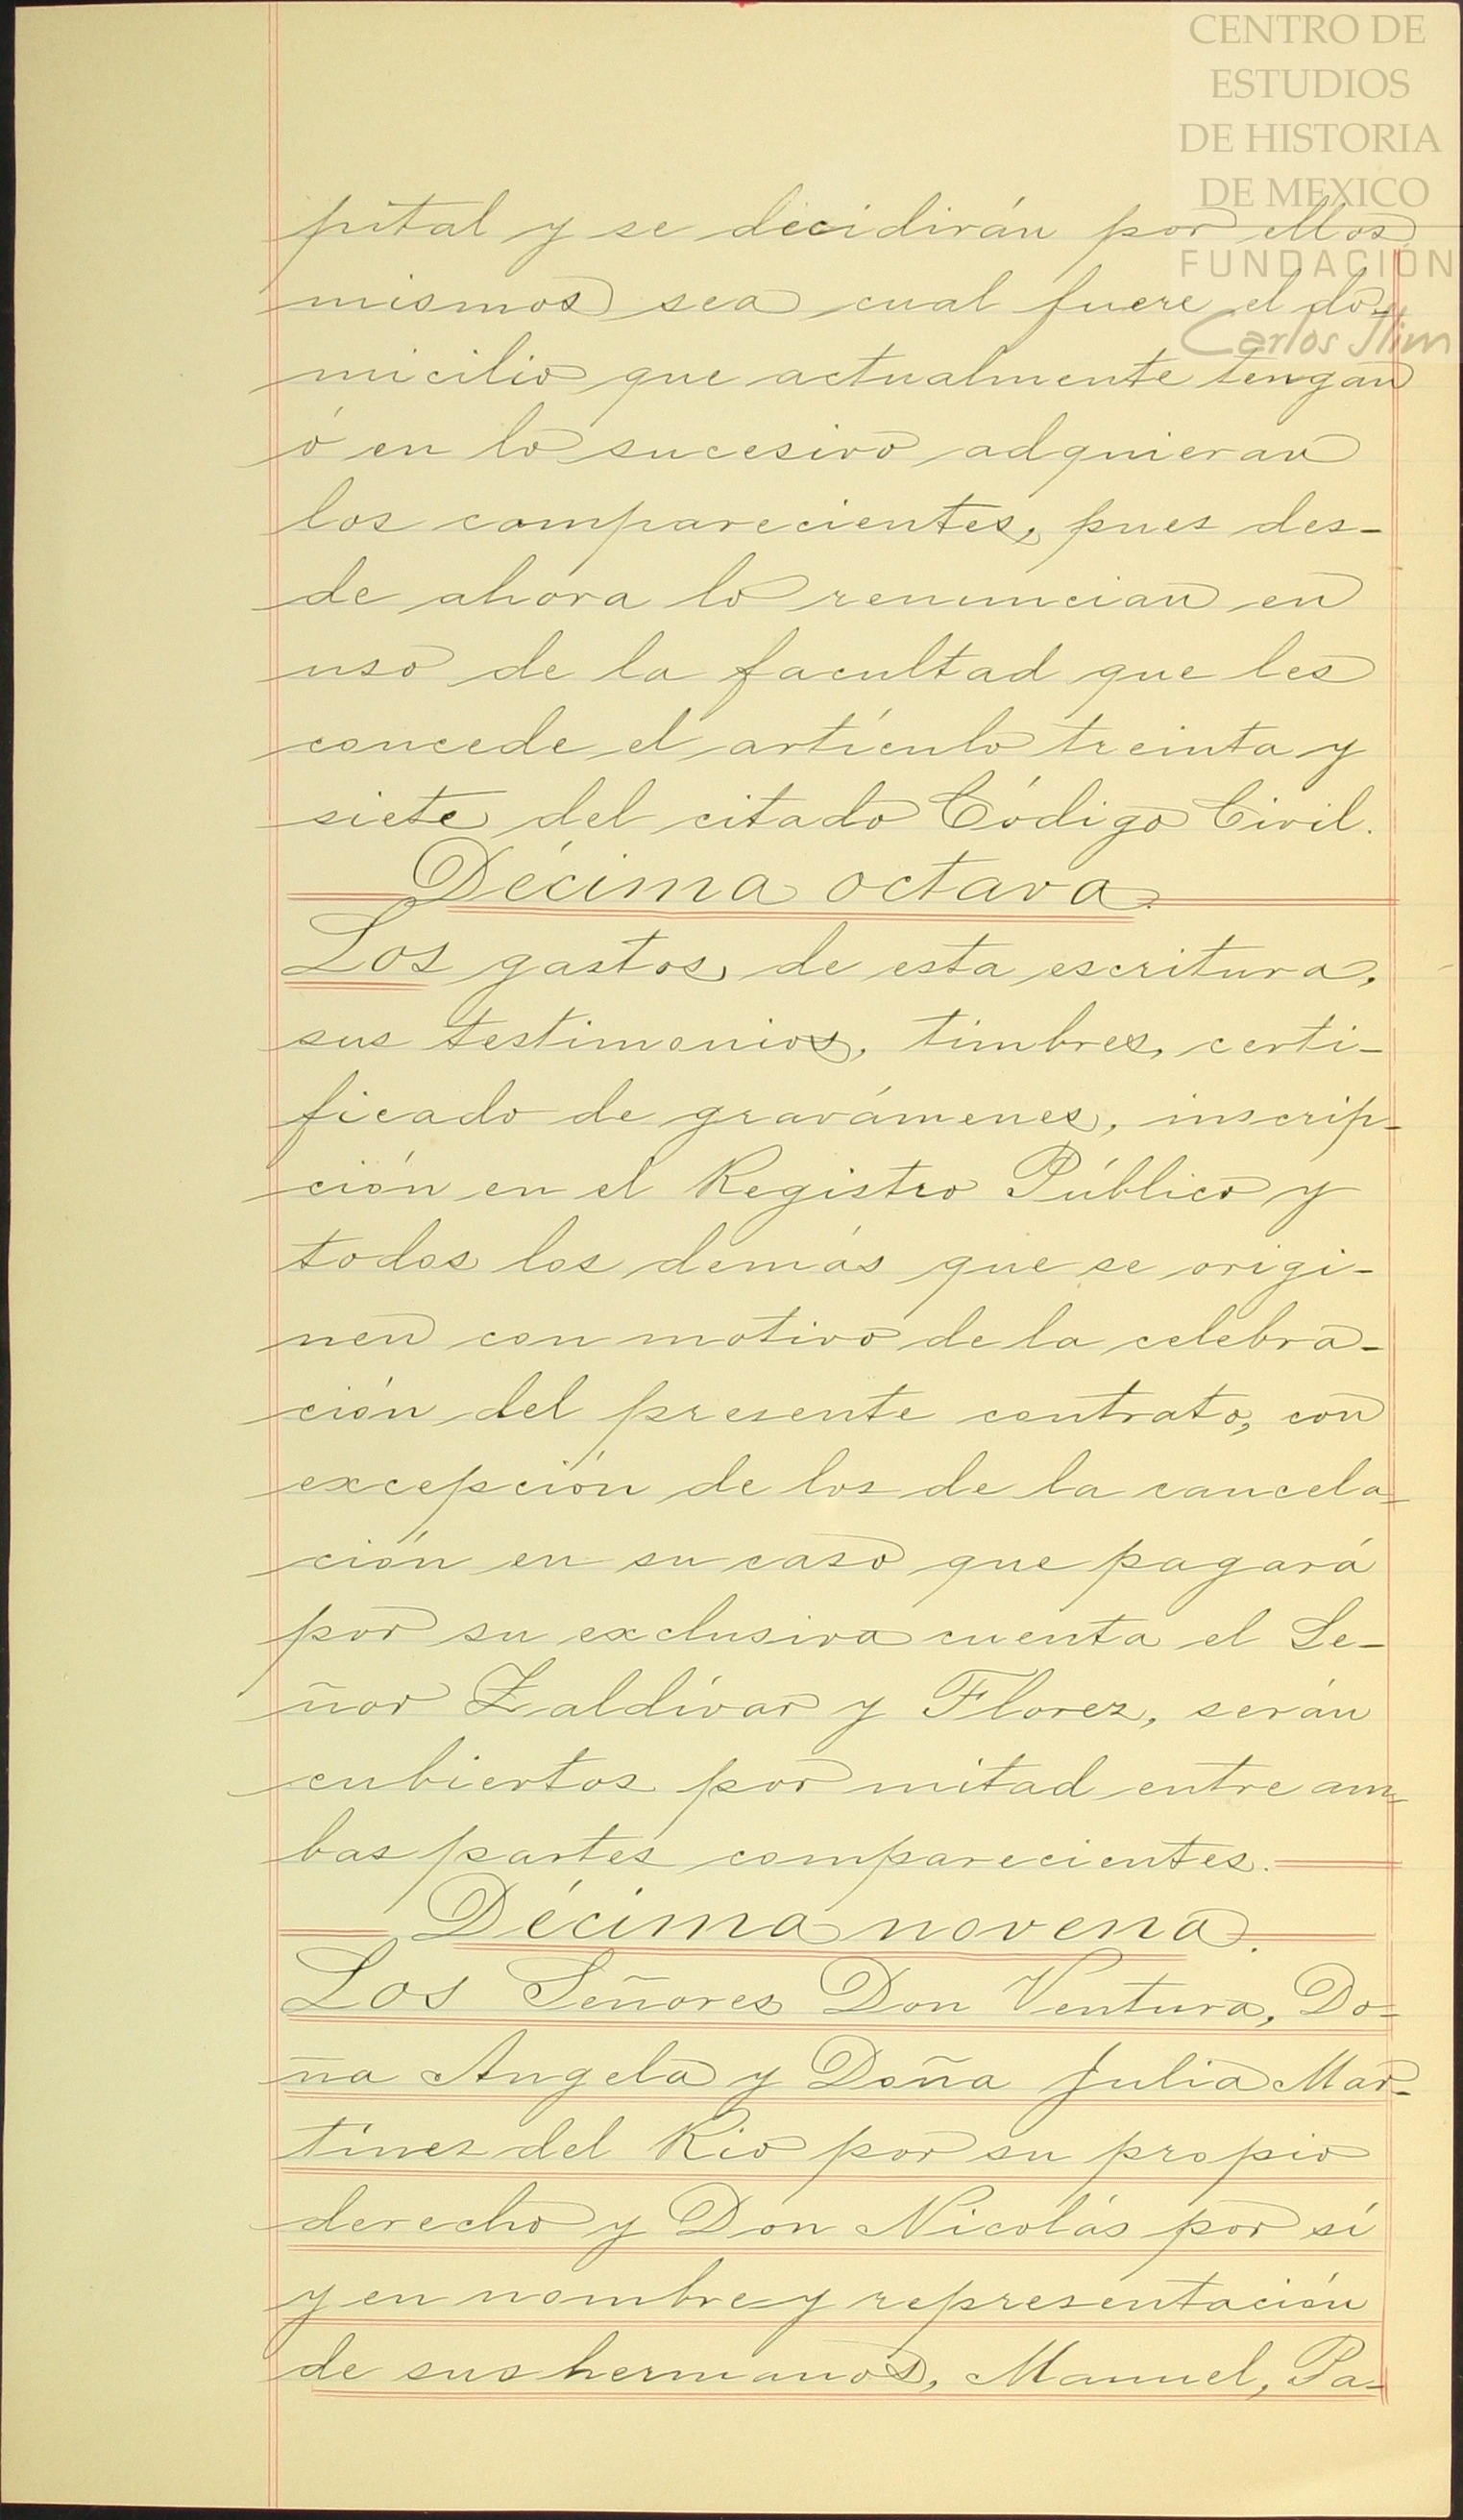 CENTRO DE
ESTUDIOS
DE HISTORIA
DE MEXICO
FUNDACIÓN
Carlos Slim
pital y se decidirán por ellos
mismos sea cual fuere el do-
micilio que actualmente tengan
ó en lo sucesivo adquieran
los comparecientes, pues des-
de ahora lo renuncian en
uso de la facultad que les
concede el artículo treinta y
siete del citado Código Civil.
Décima octava.
Los gastos de esta escritura,
sus testimonios, timbres, certi-
ficado de gravámenes, inscrip-
ción en el Registro Público y
todos los demás que se origi-
nen con motivo de la celebra-
ción del presente contrato, con
excepción de los de la cancela-
ción en su caso que pagará
por su exclusiva cuenta el Se-
ñor Zaldívar y Florez, serán
cubiertos por mitad entre am-
bas partes comparecientes.
Décima novena.
Los Señores Don Ventura, Do-
ña Angela y Doña Julia Mar-
tínez del Rio por su propio
derecho y Don Nicolás por sí
y en nombre y representación
de sus hermanos, Manuel, Pa-